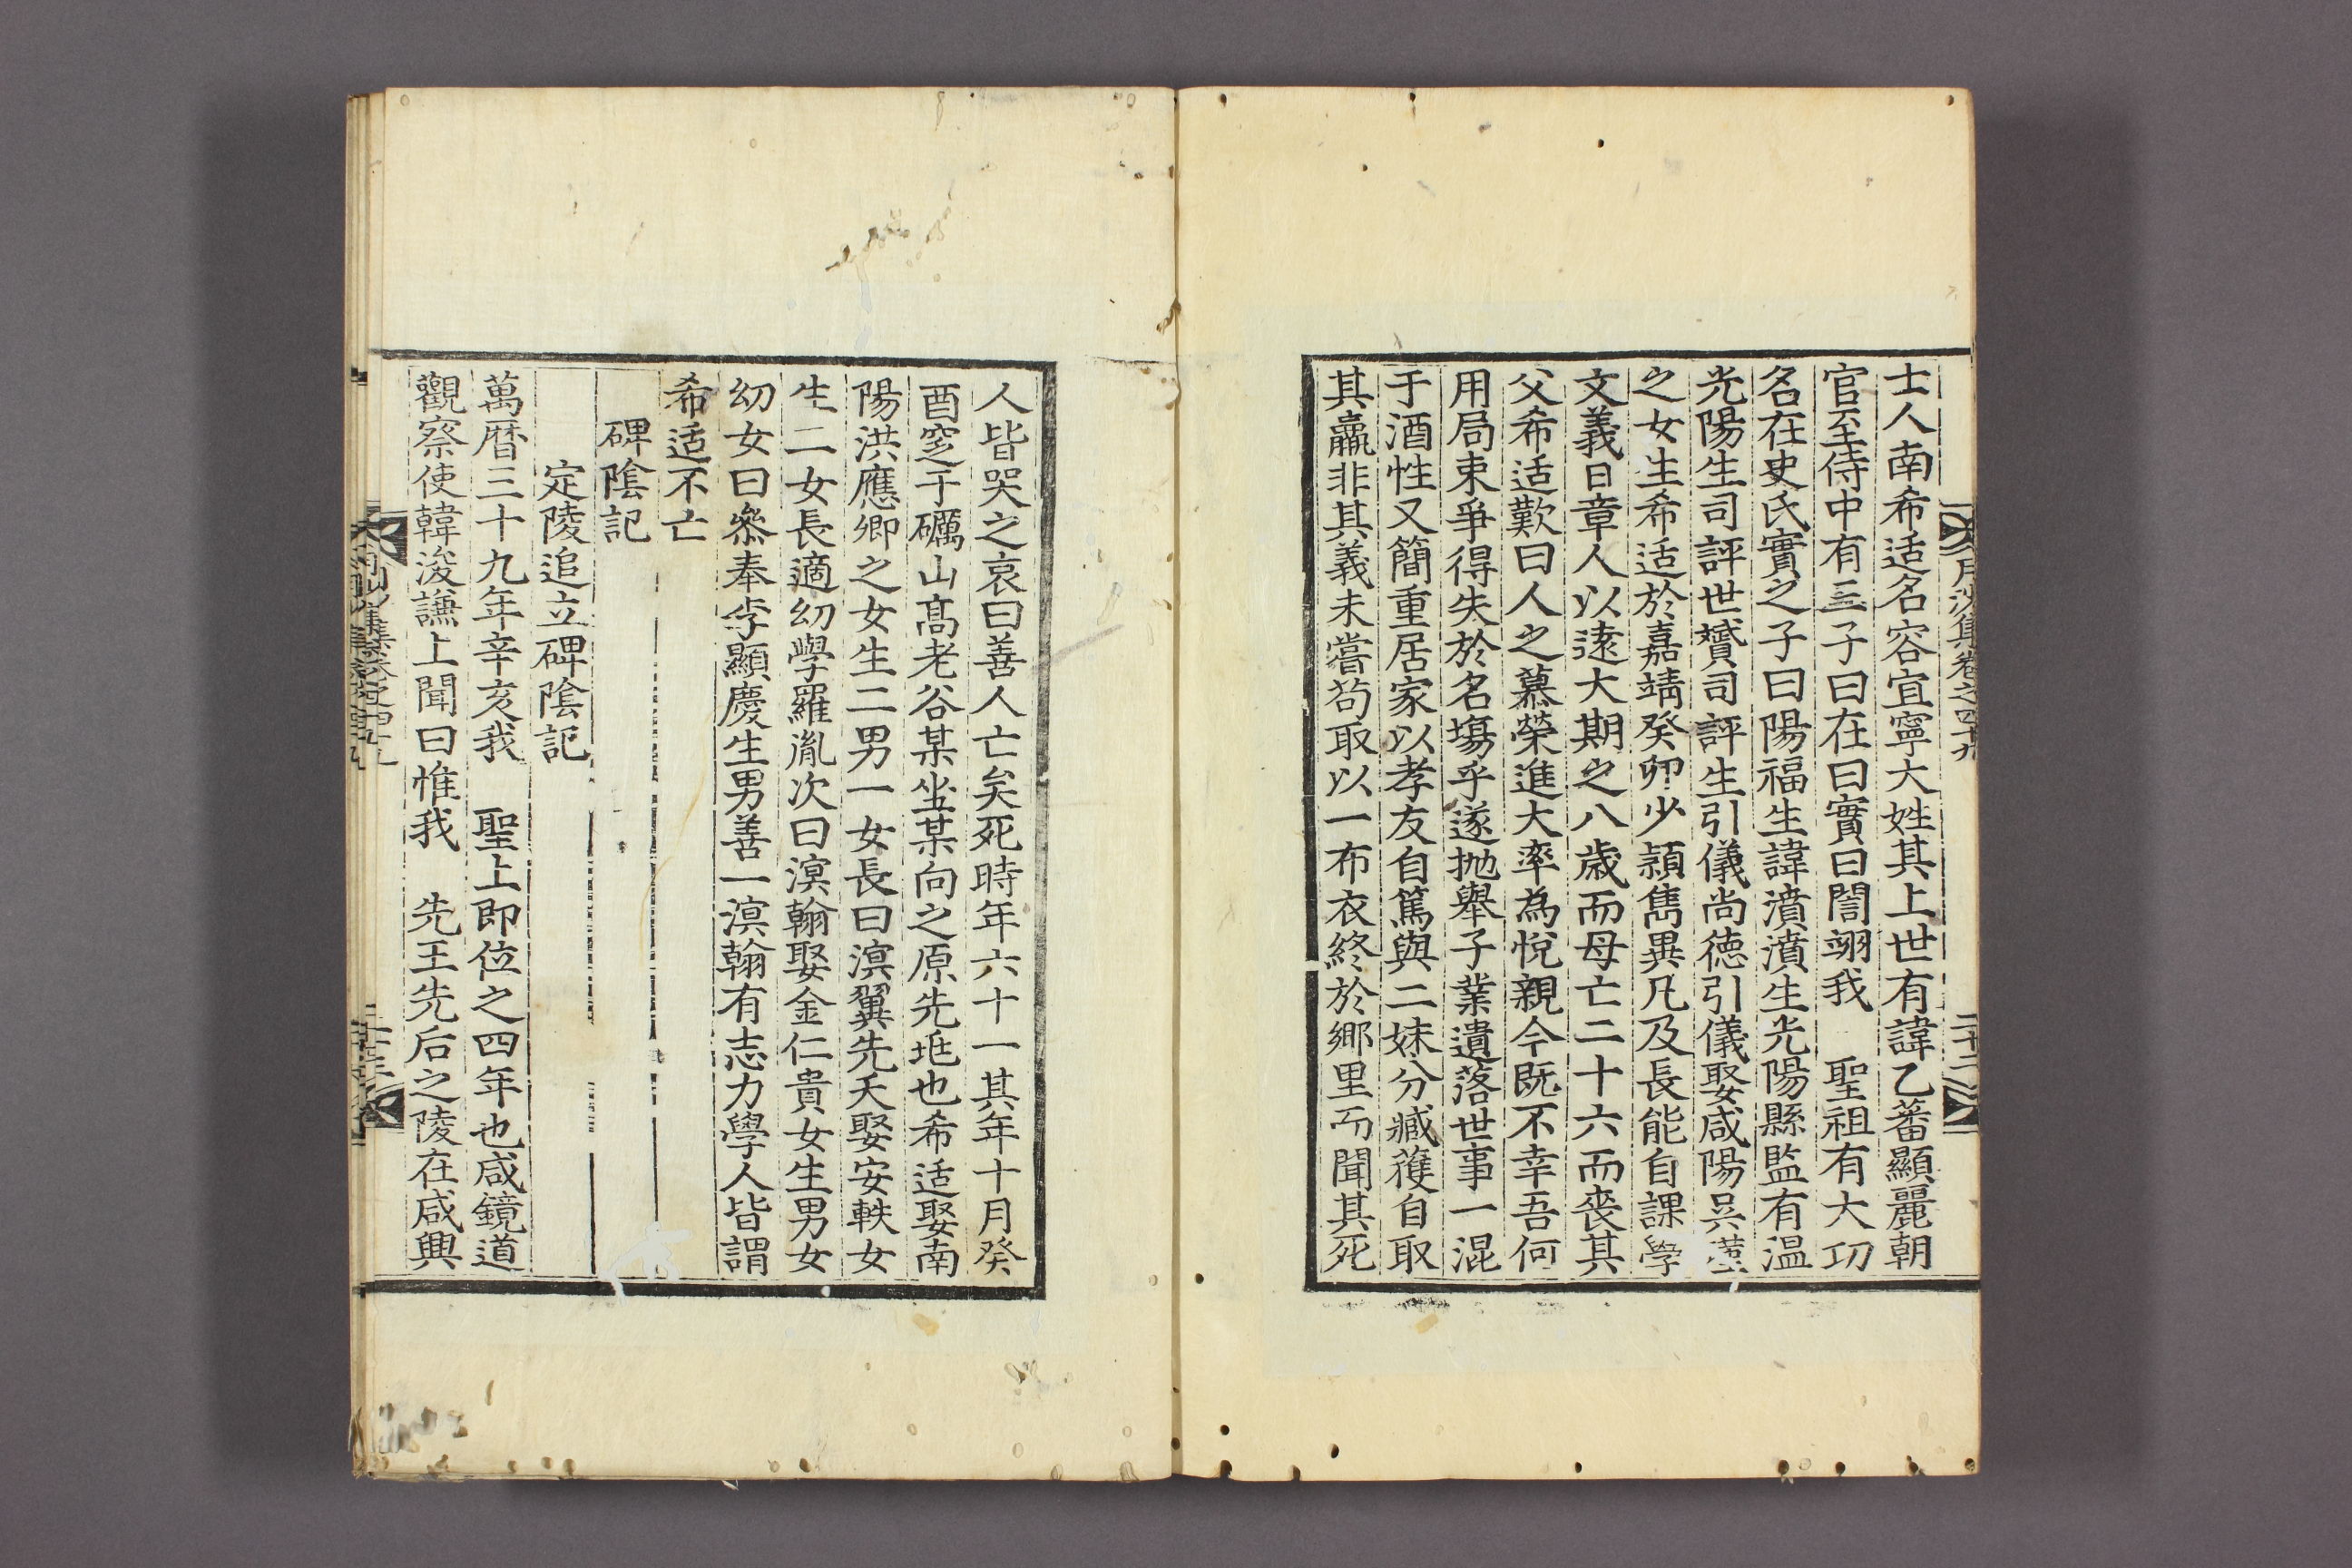 士人南希适名容宜寧大姓其上世有諱乙蕃顯麗朝
官至侍中有三子曰在曰實曰誾翊我　聖祖有大功
名在史氏實之子曰陽福生諱濆濆生光陽縣監有溫
光陽生司評世贇司評生引儀尚德引儀娶咸陽吳瑾
之女生希适於嘉靖癸卯少穎雋異凡及長能自課學
文義日章人以遠大期之八歲而母亡二十六而喪其
父希适歎曰人之慕榮進大率為悅親今既不幸吾何
用局束爭得失於名塲乎遂抛舉子業遺落世事一混
于酒性又簡重居家以孝友自篤與二妹分臧獲自取
其羸非其義未嘗苟取以一布衣終於鄉里而聞其死
月沙集卷之四十九
二十二
人皆哭之哀曰善人亡矣死時年六十一其年十月癸
酉窆于礪山髙老谷某坐某向之原先兆也希适娶南
陽洪應卿之女生二男一女長曰溟翼先夭娶安軼女
生二女長適幼學羅胤次曰溟翰娶金仁貴女生男女
幼女曰叅奉李顯慶生男善一溟翰有志力學人皆謂
希适不亡
碑陰記
定陵追立碑陰記
萬曆三十九年辛亥我　聖上即位之四年也咸鏡道
觀察使韓浚謙上聞曰惟我　先王先后之陵在咸興